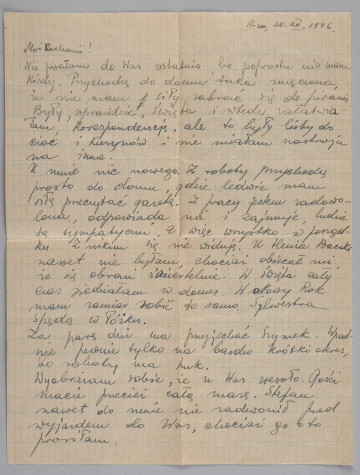 30.XII.1946.
Moi Kochani!
Nie pisałam do Was ostatnio bo poprostu nie mam
kiedy. Przychodzę do domu taka zmęczona
że nie mam siły zabrać się do pisania.
Były, wprawdzie, święta i wtedy załatwia-
łam korespondencję, ale to były listy do
cioć i kuzynów i nie miałam nastroju
na inne.
U mnie nic nowego. Z roboty przychodzę
prosto do domu, gdzie ledwie mam
siłę przeczytać gazetę. Z pracy jestem zadowo-
lona, odpowiada mi i zajmuje, ludzie
są sympatyczni, więc wszystko w porząd-
ku. Z nikim się nie widuję. U Henia
nawet nie byłam, chociaż obiecał mi
że się obrazi śmiertelnie. W święta cały
czas siedziałam w domu. W Nowy Rok
mam zamiar zrobić to samo, Sylwestra
spędzę w łóżku.
Za parę dni ma przyjechać Szymek. Wpad-
nie pewnie tylko na bardzo krótki okres,
bo roboty ma huk.
Wyobrażam sobie, że u Was wesoło. Gości
macie przecież całą masę. Stefan
nawet do mnie nie zadzwonił przed
wyjazdem do Was, chociaż go o to
prosiłam.